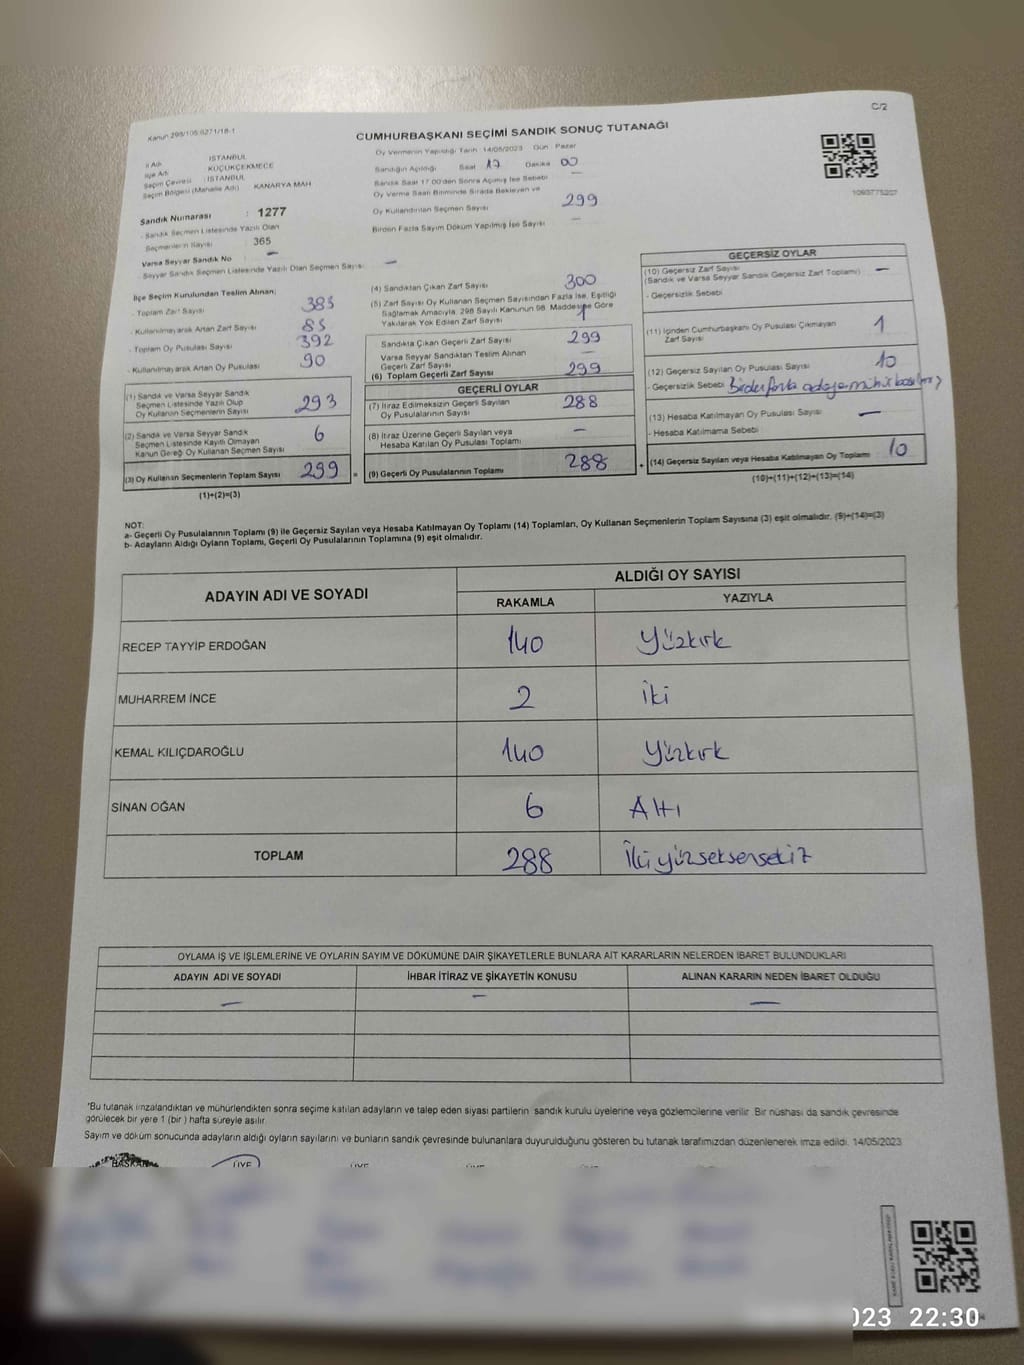 C/2
Kanun 298/105,6271/18-1
CUMHURBAŞKANI SEÇİMİ SANDIK SONUÇ TUTANAĞI
İl Adı : İSTANBUL
İlçe Adı : KÜÇÜKÇEKMECE
Seçim Çevresi : İSTANBUL
Seçim Bölgesi (Mahalle Adı) : KANARYA MAH
Sandık Numarası : 1277
- Sandık Seçmen Listesinde Yazılı Olan
Seçmenlerin Sayısı : 365
Varsa Seyyar Sandık No : –
- Seyyar Sandık Seçmen Listesinde Yazılı Olan Seçmen Sayısı : –
Oy Vermenin Yapıldığı Tarih : 14/05/2023 Gün : Pazar
Sandığın Açıldığı Saat : 17 Dakika : 00
Sandık Saat 17.00'den Sonra Açılmış İse Sebebi : –
Oy Verme Saati Bitiminde Sırada Bekleyen ve
Oy Kullandırılan Seçmen Sayısı : 299
Birden Fazla Sayım Döküm Yapılmış İse Sayısı : –
1093775207
İlçe Seçim Kurulundan Teslim Alınan;
- Toplam Zarf Sayısı : 383
- Kullanılmayarak Artan Zarf Sayısı : 83
- Toplam Oy Pusulası Sayısı : 392
- Kullanılmayarak Artan Oy Pusulası : 90
(1) Sandık ve Varsa Seyyar Sandık
Seçmen Listesinde Yazılı Olup
Oy Kullanan Seçmenlerin Sayısı : 293
(2) Sandık ve Varsa Seyyar Sandık
Seçmen Listesinde Kayıtlı Olmayan
Kanun Gereği Oy Kullanan Seçmen Sayısı : 6
(3) Oy Kullanan Seçmenlerin Toplam Sayısı : 299
(1)+(2)=(3)
(4) Sandıktan Çıkan Zarf Sayısı : 300
(5) Zarf Sayısı Oy Kullanan Seçmen Sayısından Fazla İse, Eşitliği
Sağlamak Amacıyla, 298 Sayılı Kanunun 98. Maddesine Göre
Yakılarak Yok Edilen Zarf Sayısı : 1
Sandıkta Çıkan Geçerli Zarf Sayısı : 299
Varsa Seyyar Sandıktan Teslim Alınan
Geçerli Zarf Sayısı : –
(6) Toplam Geçerli Zarf Sayısı : 299
GEÇERLİ OYLAR
(7) İtiraz Edilmeksizin Geçerli Sayılan
Oy Pusulalarının Sayısı : 288
(8) İtiraz Üzerine Geçerli Sayılan veya
Hesaba Katılan Oy Pusulası Toplamı : –
(9) Geçerli Oy Pusulalarının Toplamı : 288
GEÇERSİZ OYLAR
(10) Geçersiz Zarf Sayısı : –
(Sandık ve Varsa Seyyar Sandık Geçersiz Zarf Toplamı)
- Geçersizlik Sebebi :
(11) İçinden Cumhurbaşkanı Oy Pusulası Çıkmayan
Zarf Sayısı : 1
(12) Geçersiz Sayılan Oy Pusulası Sayısı : 10
- Geçersizlik Sebebi : Birden fazla adaya mühür
(13) Hesaba Katılmayan Oy Pusulası Sayısı : –
- Hesaba Katılmama Sebebi :
(14) Geçersiz Sayılan veya Hesaba Katılmayan Oy Toplamı : 10
(10)+(11)+(12)+(13)=(14)
NOT:
a- Geçerli Oy Pusulalarının Toplamı (9) ile Geçersiz Sayılan veya Hesaba Katılmayan Oy Toplamı (14) Toplamları, Oy Kullanan Seçmenlerin Toplam Sayısına (3) eşit olmalıdır. (9)+(14)=(3)
b- Adayların Aldığı Oyların Toplamı, Geçerli Oy Pusulalarının Toplamına (9) eşit olmalıdır.
ADAYIN ADI VE SOYADI
ALDIĞI OY SAYISI
RAKAMLA YAZIYLA
RECEP TAYYİP ERDOĞAN 140 Yüzkırk
MUHARREM İNCE 2 İki
KEMAL KILIÇDAROĞLU 140 Yüzkırk
SİNAN OĞAN 6 Altı
TOPLAM 288 İkiyüzseksensekiz
OYLAMA İŞ VE İŞLEMLERİNE VE OYLARIN SAYIM VE DÖKÜMÜNE DAİR ŞİKAYETLERLE BUNLARA AİT KARARLARIN NELERDEN İBARET BULUNDUKLARI
ADAYIN ADI VE SOYADI İHBAR İTİRAZ VE ŞİKAYETİN KONUSU ALINAN KARARIN NEDEN İBARET OLDUĞU
– – –
*Bu tutanak imzalandıktan ve mühürlendikten sonra seçime katılan adayların ve talep eden siyasi partilerin sandık kurulu üyelerine veya gözlemcilerine verilir. Bir nüshası da sandık çevresinde
görülecek bir yere 1 (bir) hafta süreyle asılır.
Sayım ve döküm sonucunda adayların aldığı oyların sayılarını ve bunların sandık çevresinde bulunanlara duyurulduğunu gösteren bu tutanak tarafımızdan düzenlenerek imza edildi. 14/05/2023
BAŞKAN ÜYE ÜYE ÜYE
023 22:30